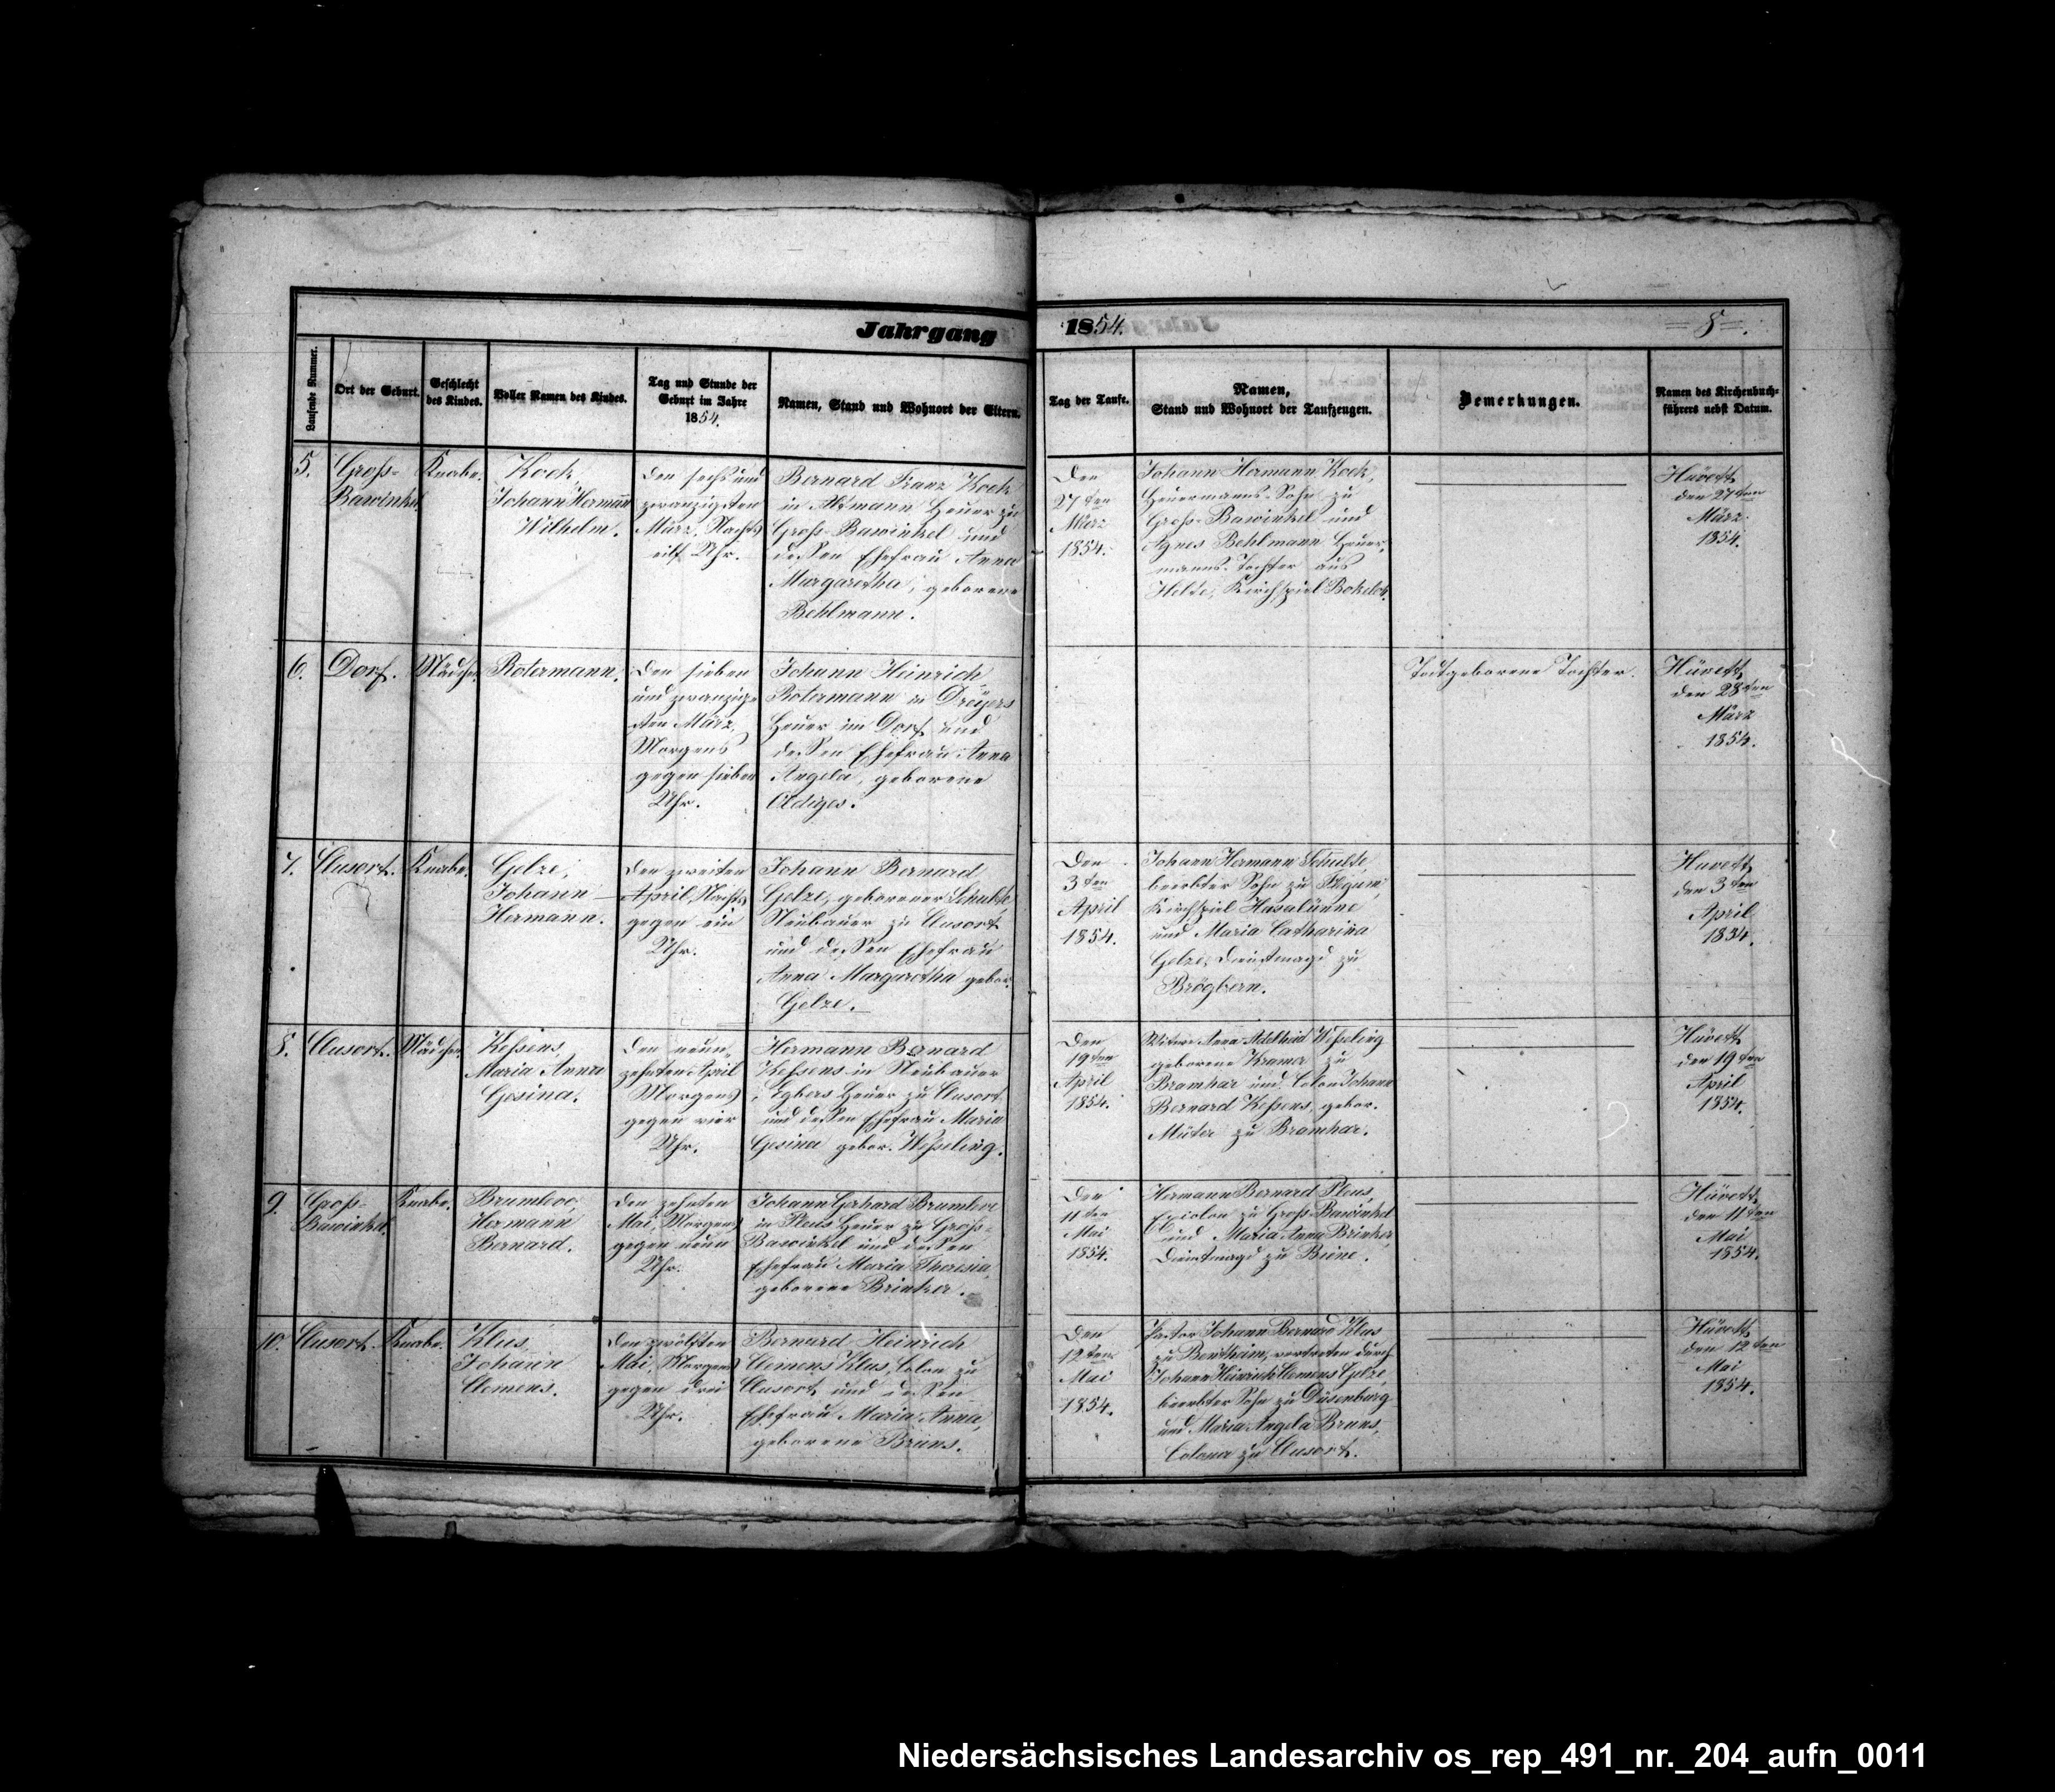 Jahrgang 1854.
= 8 =.
Laufende Nummer.
Ort der Geburt.
Geschlecht
des Kindes.
Voller Namen des Kindes.
Tag und Stunde der
Geburt im Jahre
1854.
Namen, Stand und Wohnort der Eltern.
Tag der Taufe.
Namen,
Stand und Wohnort der Taufzeugen.
Bemerkungen.
Namen des Kirchenbuch-
führers nebst Datum.
5.
Groß-
Bawinkel
Knabe.
Kock,
Johann Hermann
Wilhelm.
Den sechs und
zwanzigsten
März, Nachts
eilf Uhr.
Bernard Franz Kock
in Heuer zu
Groß-Bawinkel und
dessen Ehefrau Anna
Margaretha, geborene
Behlmann.
Den
27ten
März
1854.
Johann Hermann Kock,
Heuermanns-Sohn zu
Groß-Bawinkel und
Agnes Behlmann Heuer-
manns-Tochter aus
Helte, Kirchspiel Bokeloh.
Hüvett,
den 27ten
März
1854.
6.
Dorf.
Mädchen.
Rotermann.
Den sieben
und zwanzig-
sten März,
Morgens
gegen sieben
Uhr.
Johann Heinrich
Rotermann in Dreyers
Heuer im Dorf und
dessen Ehefrau Anna
Angela, geborene
Aldiges.
Todtgeborene Tochter.
Hüvett,
den 28ten
März
1854.
7.
Clusort.
Knabe.
Gelze,
Johann
Hermann.
Den zweiten
April, Nachts
gegen ein
Uhr.
Johann Bernard
Gelze, geborener Schulte
Neubauer zu Clusort
und dessen Ehefrau
Anna Margaretha gebor.
Gelze.
Den
3ten
April
1854.
Johann Hermann Schulte,
beerbter Sohn zu
Kirchspiel Haselünne
und Maria Catharina
Gelze, Dienstmagd zu
Brögbern.
Huvett,
den 3ten
April
1854.
8.
Clusort.
Mädchen.
Keßens,
Maria Anna
Gesina.
Den neun-
zehnten April
Morgens
gegen vier
Uhr.
Hermann Bernard
Keßens in Neubauer
Egbers Heuer zu Clusort
und dessen Ehefrau Maria
Gesina gebor. Weßeling.
Den
19ten
April
1854.
Witwe Anna Adelheid Weßeling
geborene Kramer zu
Bramhar und Colon Johann
Bernard Keßens, gebor.
Müter zu Bramhar.
Hüvett,
den 19ten
April
1854.
9.
Groß-
Bawinkel.
Knabe.
Brumloe,
Hermann
Bernard.
Den zehnten
Mai, Morgens
gegen neun
Uhr.
Johann Gerhard Brumloe
in Pleus Heuer zu Groß-
Bawinkel und dessen
Ehefrau Maria Theresia,
geborene Brinker.
Den
11ten
Mai
1854.
Hermann Bernard Pleus,
Excolon zu Groß-Bawinkel
und Maria Anna Brinker,
Dienstmagd zu Biene.
Hüvett,
den 11ten
Mai
1854.
10.
Clusort.
Knabe.
Klus,
Johann
Clemens.
Den zwölften
Mai, Morgens
gegen drei
Uhr.
Bernard Heinrich
Clemens Klus, Colon zu
Clusort und dessen
Ehefrau Maria Anna,
geborene Bruns.
Den
12ten
Mai
1854.
Pastor Johann Bernard Klus
zu Bentheim, vertreten durch
Johann Heinrich Clemens Gelze,
beerbter Sohn zu Düsenburg
und Maria Angela Bruns,
Colona zu Clusort.
Hüvett,
den 12ten
Mai
1854.
Niedersächsisches Landesarchiv os_rep_491_nr._204_aufn_0011